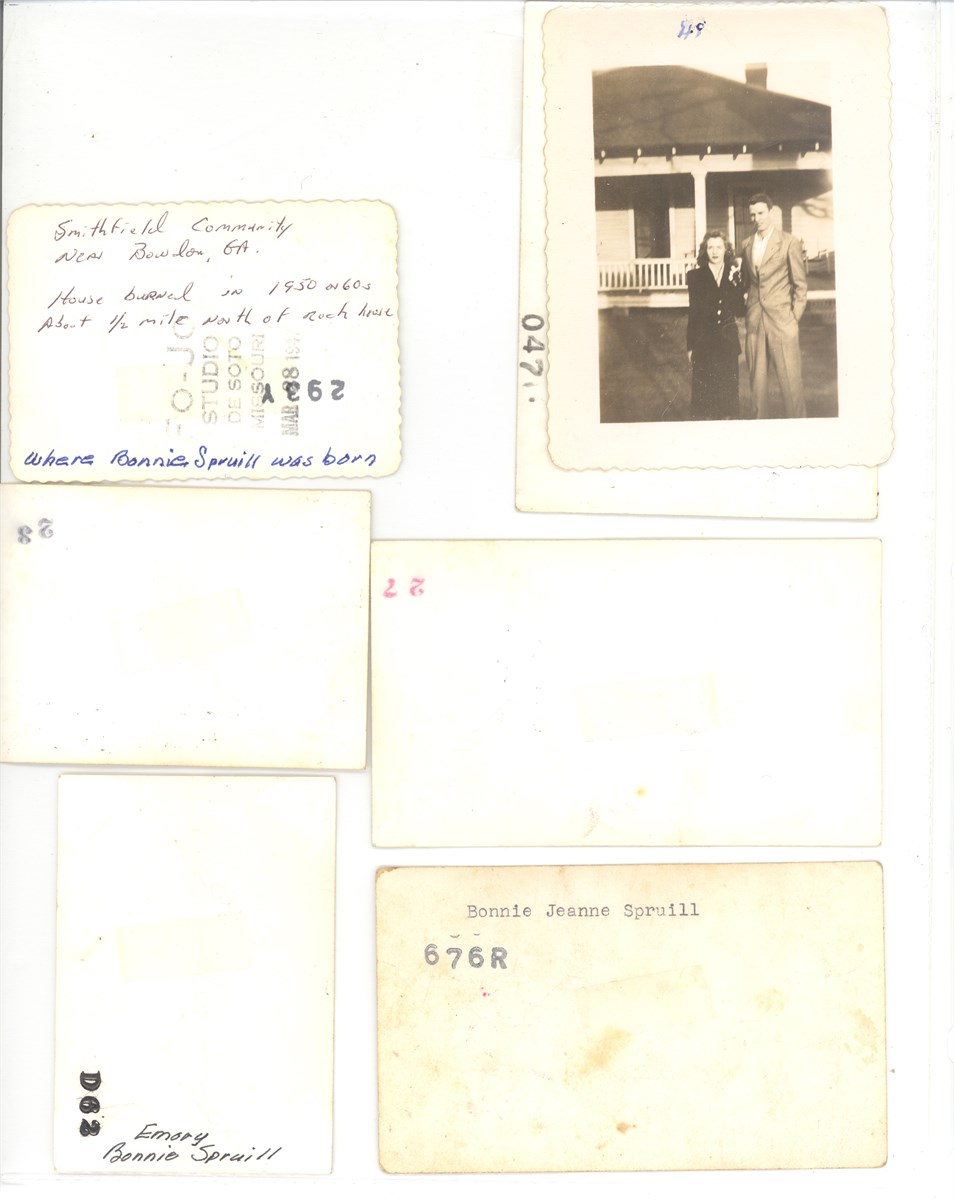 49
Smithfield Community
Near Bowdon, GA.
House burned in 1950 or 60s
About 1/2 mile north of rock house
O-JO
STUDIO
DE SOTO
MISSOURI
MAR 08 19
293Y
where Bonnie Spruill was born
047
23
27
Bonnie Jeanne Spruill
676R
D62
Emory
Bonnie Spruill